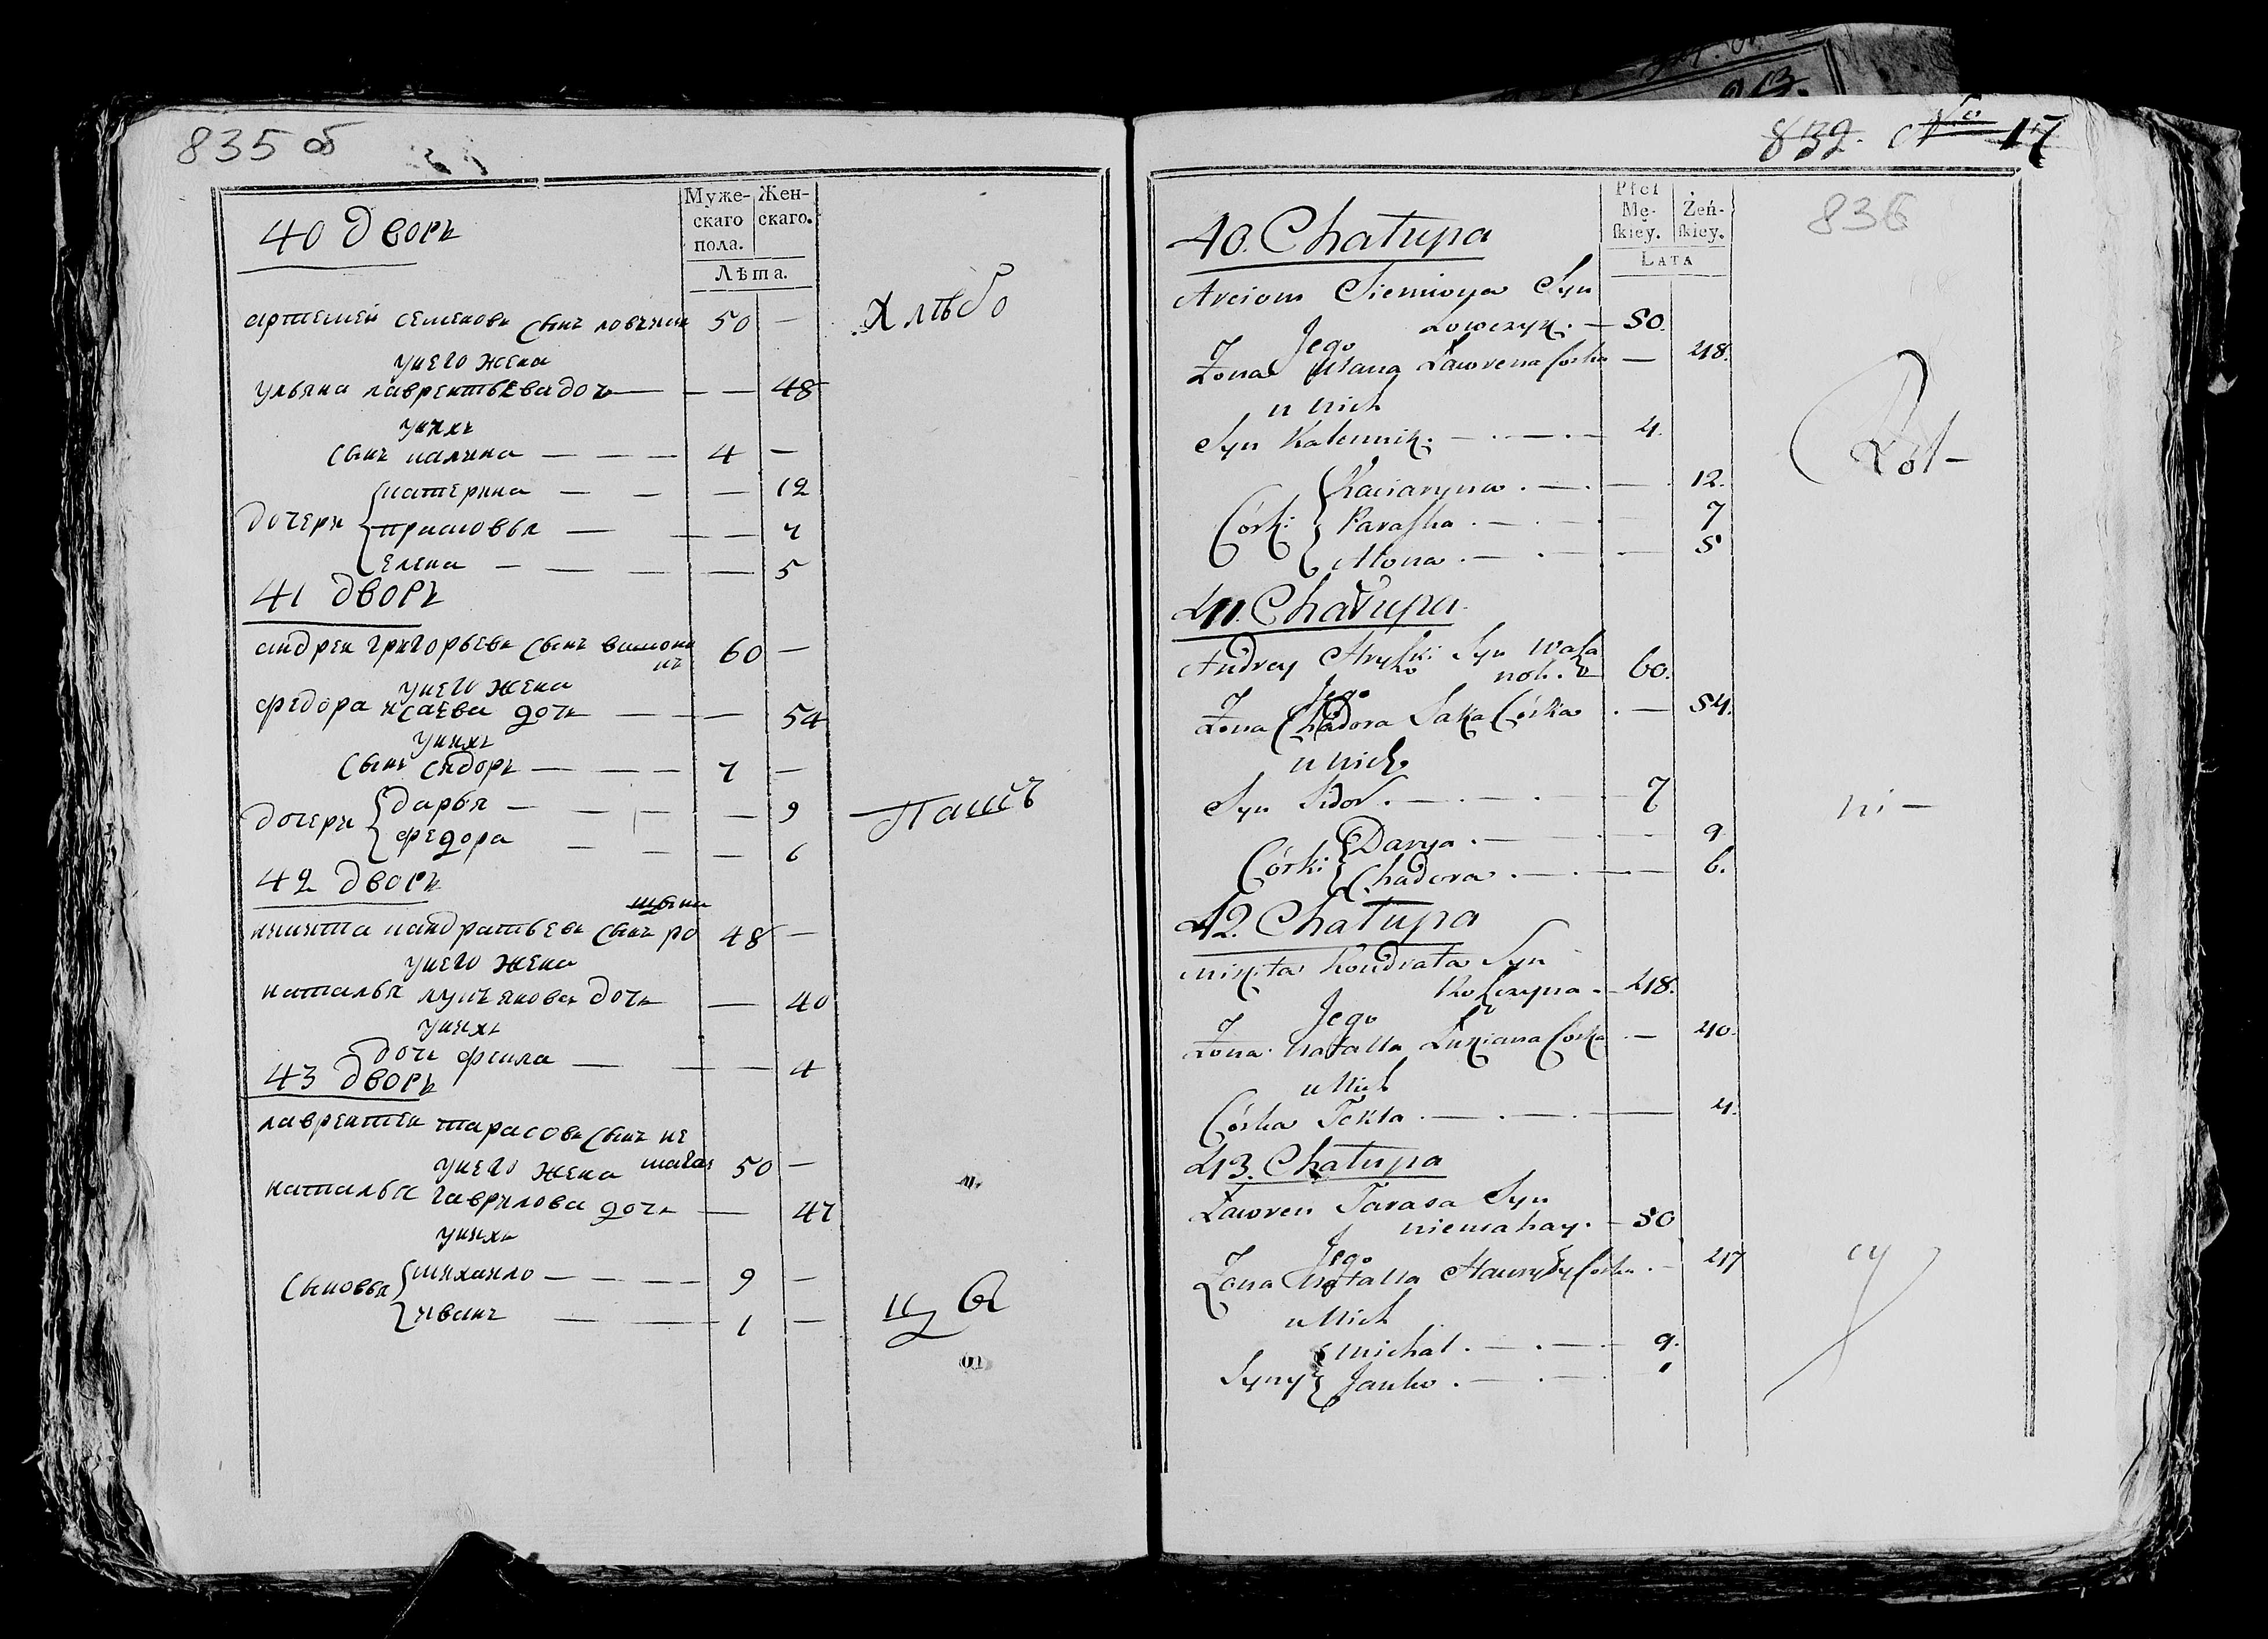 835 об
Муже-
скаго
пола.
Жен-
скаго.
Лѣта.
40 дворъ
артемей семеновъ сынъ ловчик 50 —
унего жена
ульяна лаврентьева доч — — — 48
унихъ
сынъ калина — — — 4 —
дочери катерина — — — 12
прасковья — — — 7
елена — — — — 5
Хлѣбо
41 дворъ
андреи григорьевъ сынъ вашоно
къ 60 —
унего жена
федора исаева дочь — — — 54
унихъ
сынъ сидоръ — — — 7 —
дочери дарья — — — — 9
федора — — — 6
Пашѣ
42 дворъ
никита кандратьевъ сынъ ро 48 —
унего жена
наталья лукьянова дочь — 40
унихъ
дочь фекла — — — 4
43 дворъ
лаврентеи тарасовъ сынъ не
магаи 50 —
унего жена
наталья гаврилова дочь — 47
унихъ
сыновья михаило — — — — 9 —
иванъ — — — 1 —
832. No 17
836
Płci
Mę-
skiey.
Żeń-
skiey.
LATA
40. Chałupa
Arciom Siemiona Syn
Łowczyk. — 50.
Jego
Żona Ulana Ławrena Corka — 48.
u Nich
Syn Kalennik. — . — . — 4.
Córki Kaciaryna . — . — . 12.
Paraska . — . — 7
Alona . — . — 5
41. Chałupa
Andrey Hryśki Syn Wasa
nok. 60.
Jego
Żona Chadora Saka Córka . — 54.
u Nich
Syn Sidor . — . — . — 7
Córki Darya . — . — 9
Chadora . — . — 6.
ni —
42. Chałupa
Mikita Kondrata Syn
48.
Jego
Żona Natalla Łukiana Corka . — 40.
u Nich
Córka Tekla . — . — . — 4.
43. Chałupa
Ławren Tarasa Syn
Niemahay. — 50
Jego
Żona Natalla Hawryły Corka . — 47
u Nich
Syny Michał . — . — . — 9.
Janko . — . — 1